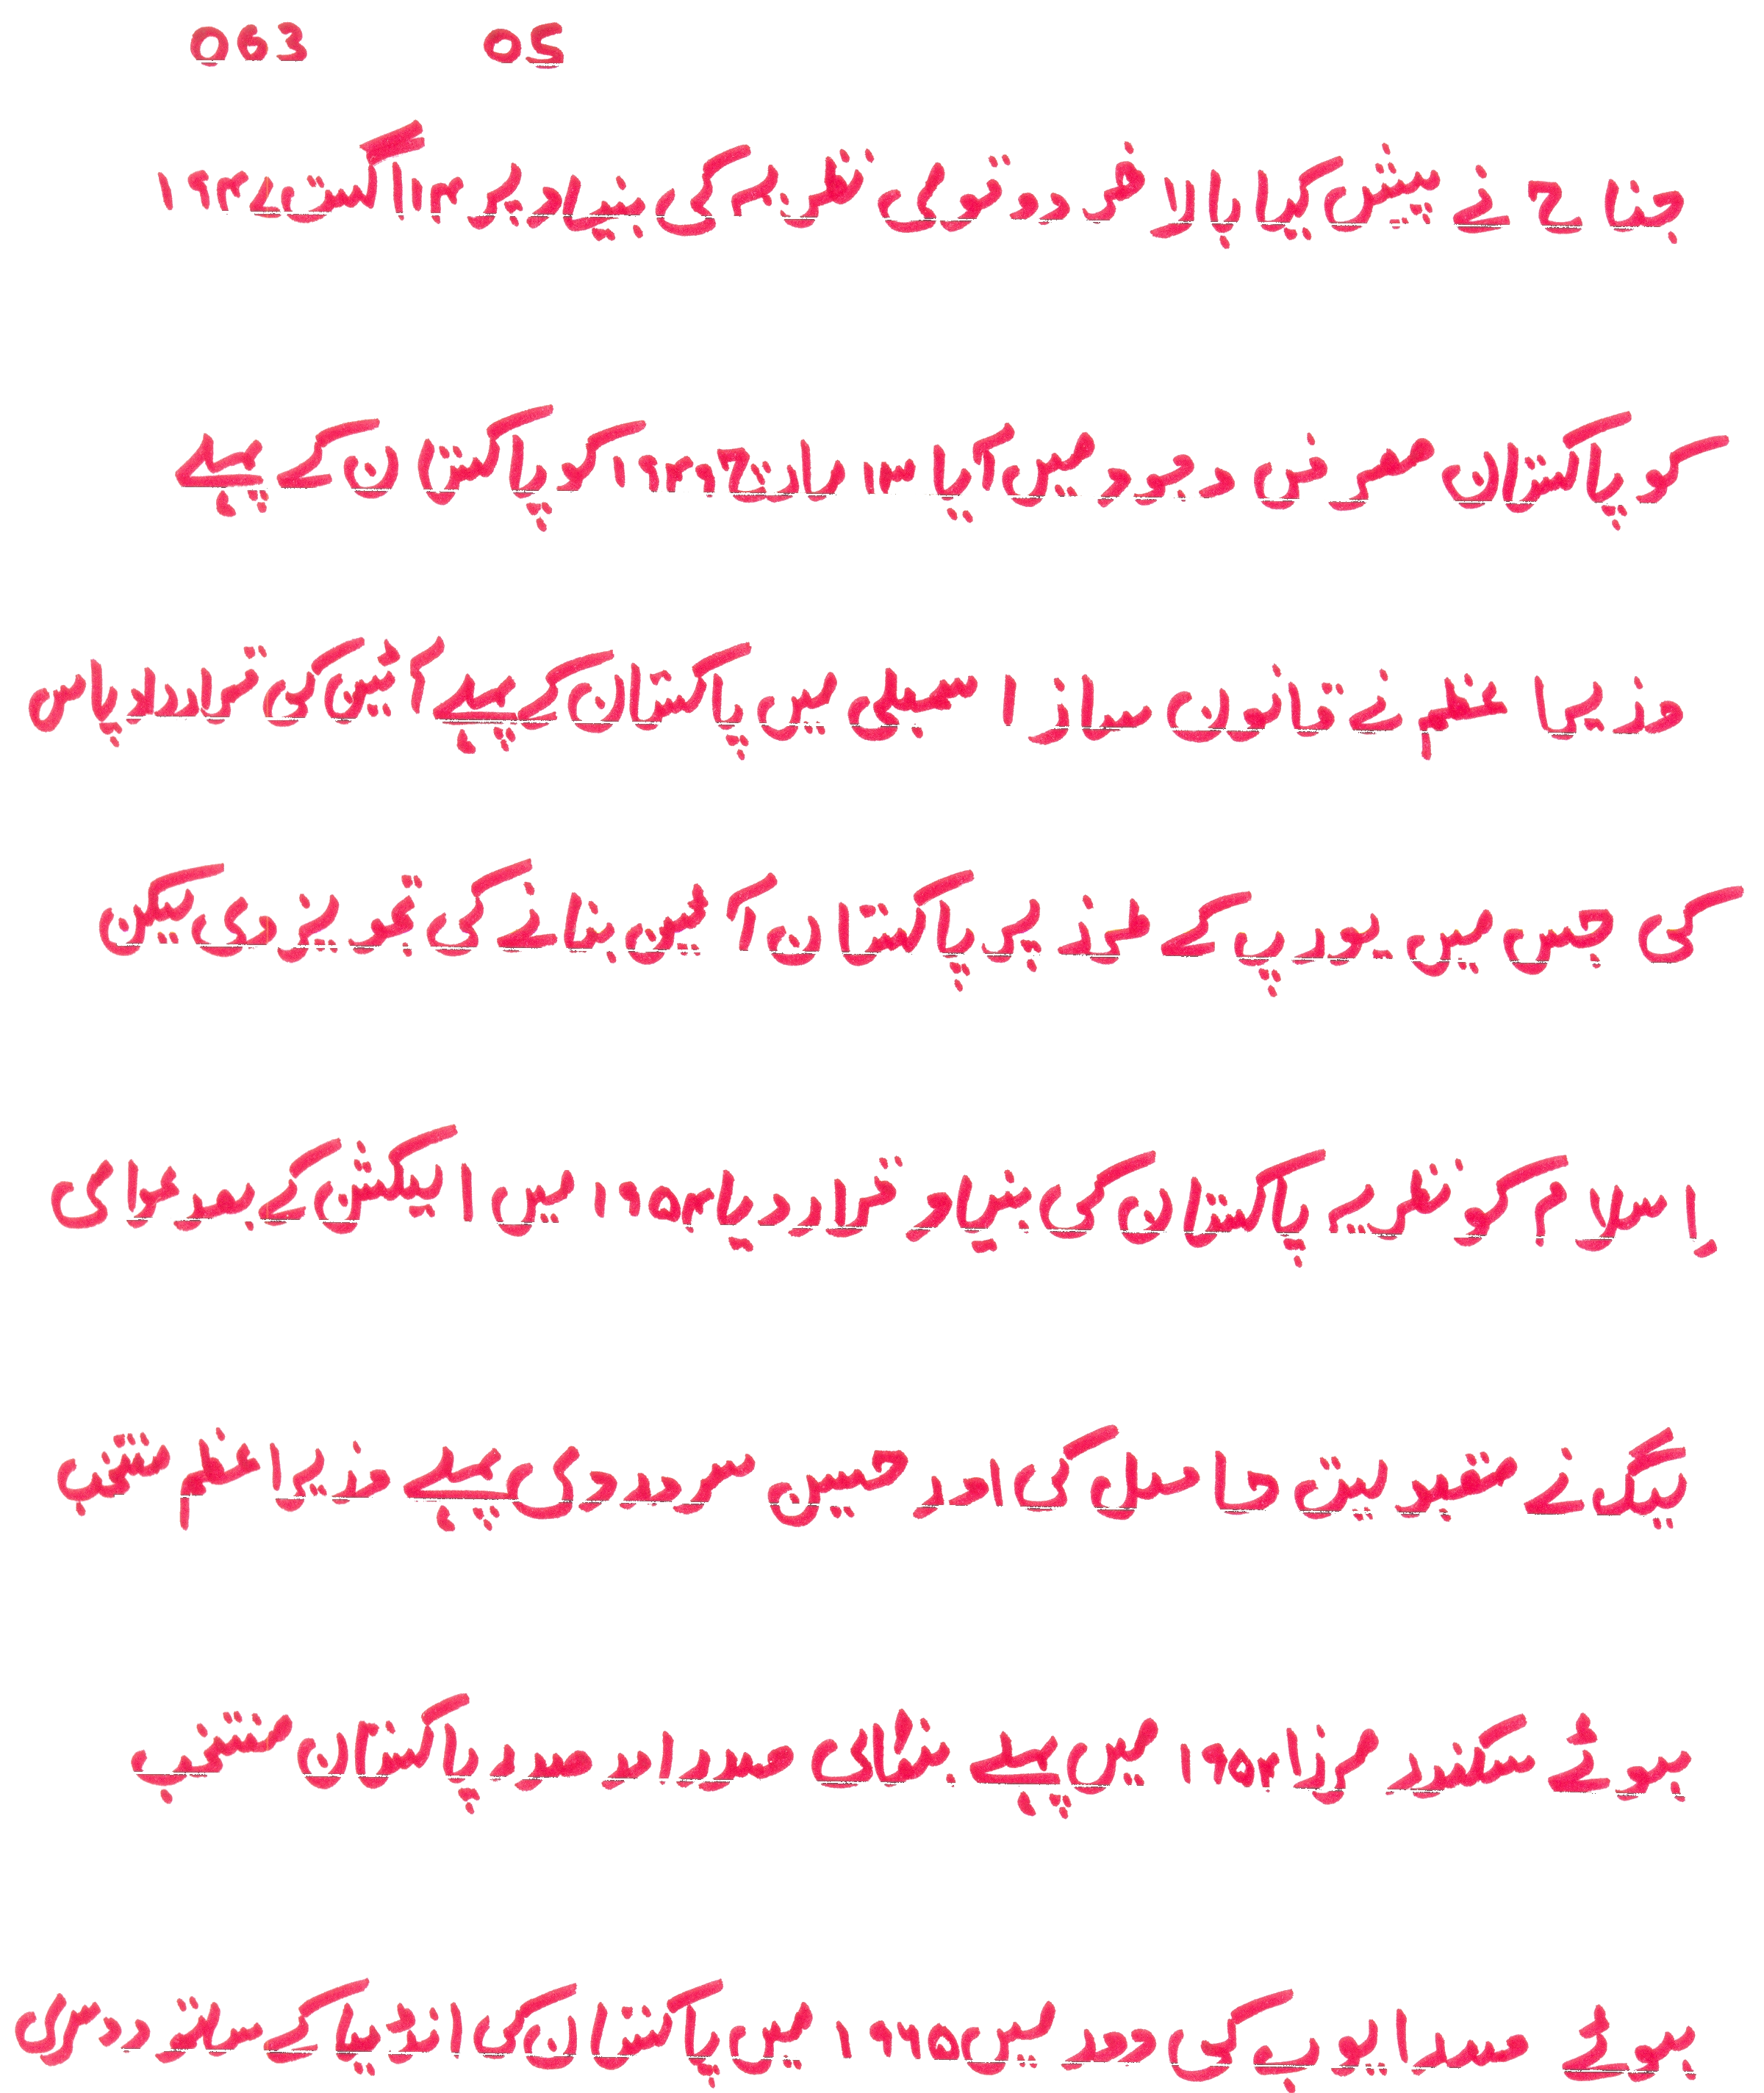 063 05
جناح نے پیش کیا بالا خر دو قومی نظریہ کی بنیاد پر ۱۴ اگست ۱۹۴۷
کو پاکستان معرض وجود میں آیا ۱۳ مارچ ۱۹۴۹ کو پاکستان کے پہلے
وزیرا عظم نے قانون ساز ا سمبلی میں پاکستان کے پہلے آئین کی قرارداد پاس
کی جس میں یورپ کے طرز پر پاکستان آئین بنانے کی تجویز دی لیکن
اِسلام کو نظریہ پاکستان کی بنیاد قرار دیا ۱۹۵۴ میں الیکشن کے بعد عوامی
لیگ نے مقبولیت حاصل کی اور حسین سروردی پہلے وزیرا عظم منتخب
ہوئے سکندر مرزا ۱۹۵۴ میں پہلے بنگالی صدر اور صدر پاکستان منتخب
ہوئے صدر ایوب کی دور میں ۱۹۶۵ میں پاکستان کی انڈیا کے ساتھ دوسری